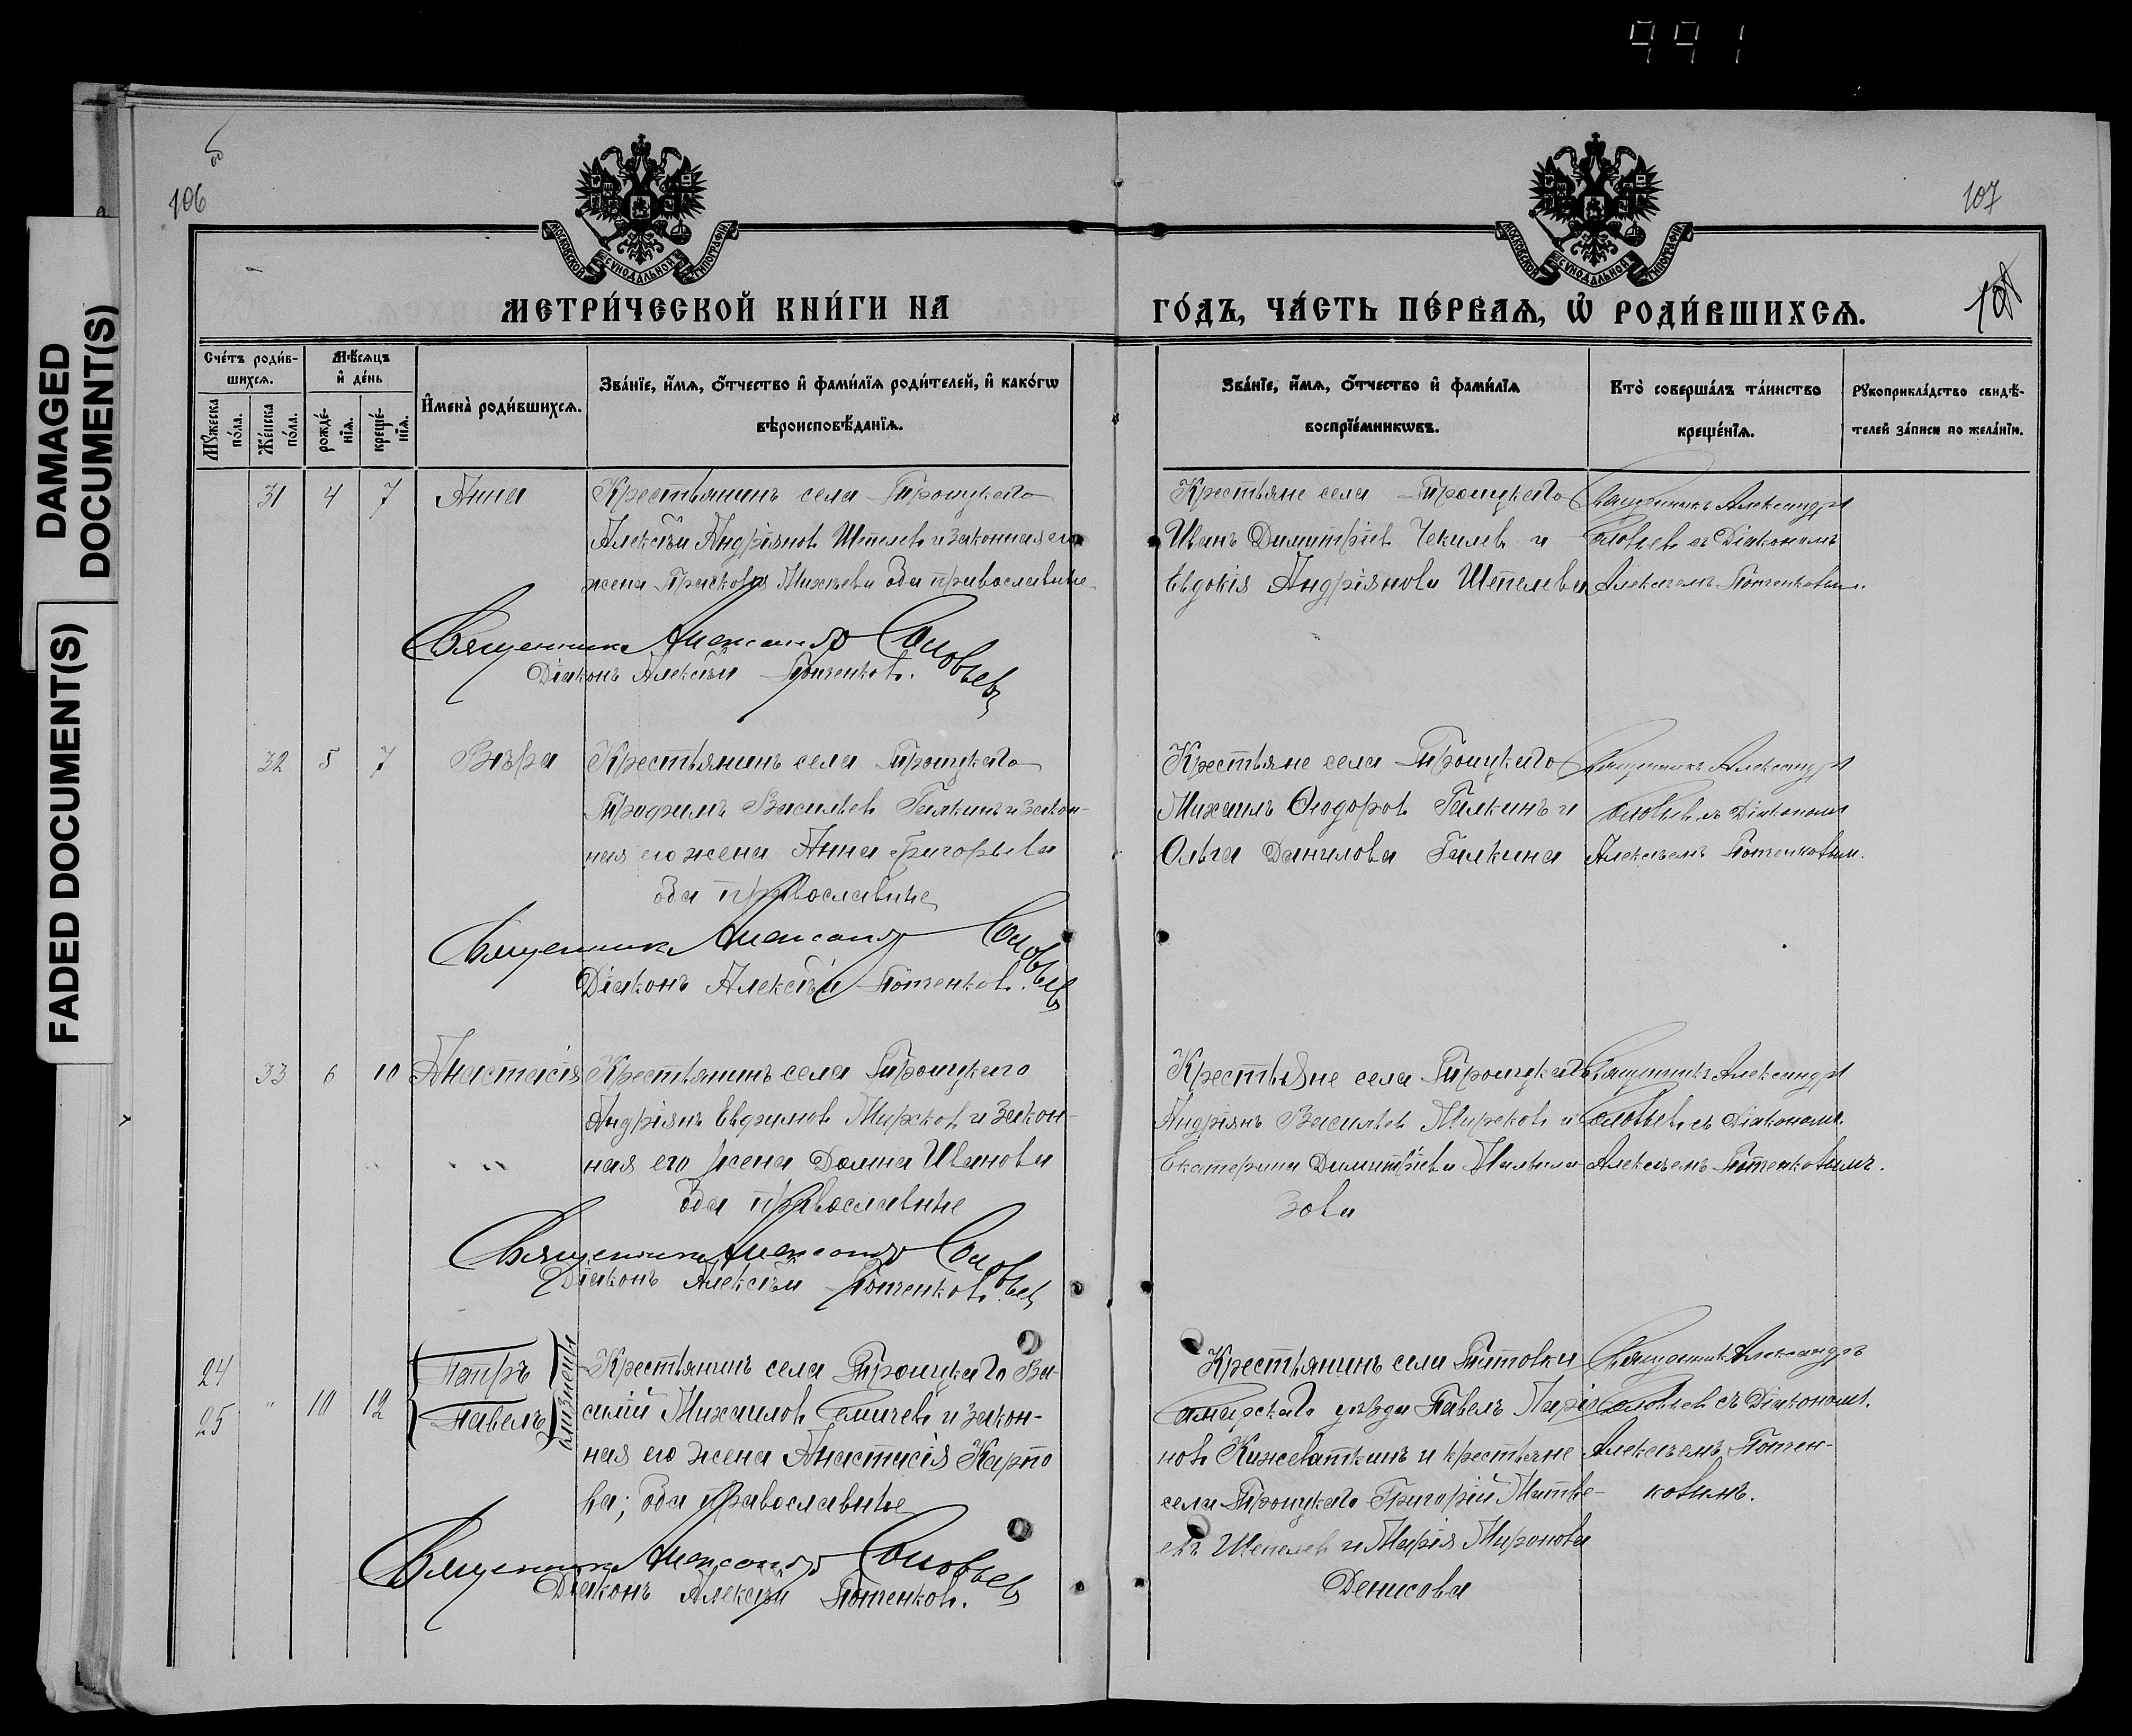 991
106
107
DAMAGED
DOCUMENT(S)
FADED DOCUMENT(S)
МОСКОВСКОЙ СѴНОДАЛЬНОЙ ТИПОГРАФІИ
МОСКОВСКОЙ СѴНОДАЛЬНОЙ ТИПОГРАФІИ
МЕТРИ́ЧЕСКОЙ КНИ́ГИ НА
ГО́ДЪ, ЧА́СТЬ ПЕ́РВАѦ, Ѡ҆ РОДИ́ВШИХСѦ.
Сче́тъ роди́в-
шихсѧ.
Мѣ́сѧцъ
и҆ де́нь
Мꙋ́жеска
по́ла.
Же́нска
по́ла.
рожде́-
нїѧ.
креще́-
нїѧ.
И҆мена̀ роди́вшихсѧ.
Зва́нїе, и҆́мѧ, ѻ҆́тчество и҆ фами́лїѧ роди́телей, и҆ како́гѡ
вѣроисповѣ́данїѧ.
Зва́нїе, и҆́мѧ, ѻ҆́тчество и҆ фами́лїѧ
воспрїе́мникѡвъ.
Кто̀ соверша́лъ та́инство
креще́нїѧ.
Рꙋкоприкла́дство свидѣ́-
телей за́писи по жела́нїю.
31 4 7 Анна
Крестьянинъ села Троицкаго
Алексѣй Андріянов Шепелев и законная его
жена Прасковья Михѣева оба православные
Священникъ Александръ Соловьев
Діаконъ Алексѣй Потченков.
Крестьяне села Троицкаго
Иванъ Димитріев Чекилев и
Евдокія Андріянова Шепелева
Священникъ Александръ
Соловьев съ Діакономъ
Алексѣемъ Потченковым.
32 5 7 Вѣра
Крестьянинъ села Троицкаго
Трофимъ Васильев Галкинъ и закон-
ная его жена Анна Григорьева
оба православные
Священникъ Александръ Соловьев
Діаконъ Алексѣй Потченков.
Крестьяне села Троицкаго
Михаилъ Ѳеодоров Галкинъ и
Ольга Данилова Галкина
Священникъ Александръ
Соловьев съ Діакономъ
Алексѣемъ Потченковым.
33 6 10 Анастасія
Крестьянинъ села Троицкаго
Андріянъ Евфимов Мирсков и закон-
ная его жена Домна Иванова
оба православные
Священникъ Александръ Соловьев
Діаконъ Алексѣй Потченков.
Крестьяне села Троицкаго
Андріянъ Васильев Мирсков и
Екатерина Димитріева
зова
Священникъ Александръ
Соловьев съ Діакономъ.
Алексѣемъ Потченковымъ.
24
25 " 10 12
Петръ
Павелъ
близнецы
Крестьянинъ села Троицкаго Ва-
силій Михаилов Семичев и закон-
ная его жена Анастасія Карпо
ва; оба православные
Священникъ Александръ Соловьев
Діаконъ Алексѣй Потченков.
Крестьянинъ села Титовки
Самарскаго уѣзда Павелъ Ларіо
нов Кижеваткинъ и крестьяне
села Троицкаго Григорій Матве-
евъ Шепелев и Марія Миронова
Денисова
Священникъ Александръ
Соловьев съ Діакономъ.
Алексѣемъ Потчен-
ковымъ.